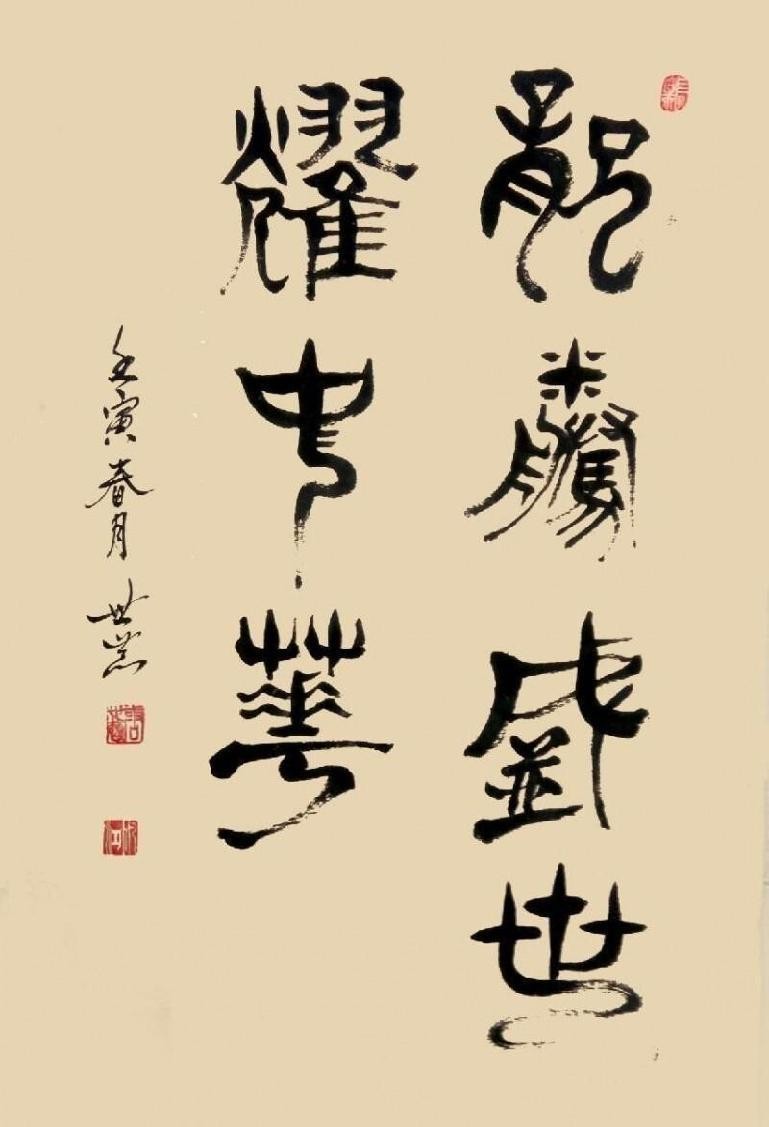 龍騰盛世
耀中華
壬寅春月世